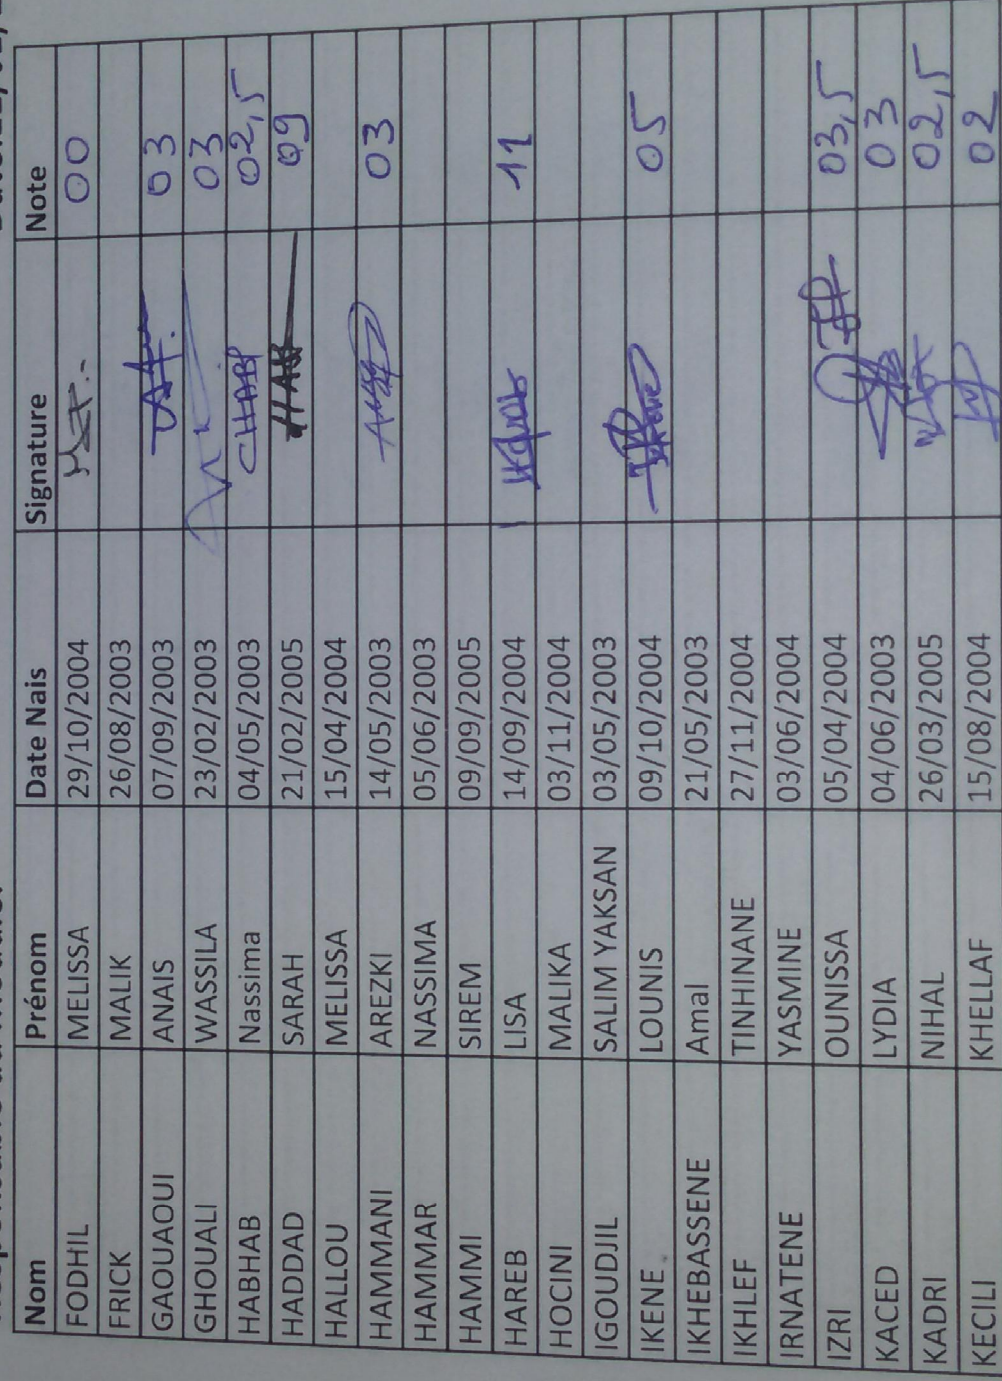 Nom Prénom Date Nais Signature Note
FODHIL MELISSA 29/10/2004 00
FRICK MALIK 26/08/2003
GAOUAOUI ANAIS 07/09/2003 03
GHOUALI WASSILA 23/02/2003 03
HABHAB Nassima 04/05/2003 02,5
HADDAD SARAH 21/02/2005 09
HALLOU MELISSA 15/04/2004
HAMMANI AREZKI 14/05/2003 03
HAMMAR NASSIMA 05/06/2003
HAMMI SIREM 09/09/2005
HAREB LISA 14/09/2004 11
HOCINI MALIKA 03/11/2004
IGOUDJIL SALIM YAKSAN 03/05/2003
IKENE LOUNIS 09/10/2004 05
IKHEBASSENE Amal 21/05/2003
IKHLEF TINHINANE 27/11/2004
IRNATENE YASMINE 03/06/2004
IZRI OUNISSA 05/04/2004 03,5
KACED LYDIA 04/06/2003 03
KADRI NIHAL 26/03/2005 02,5
KECILI KHELLAF 15/08/2004 02